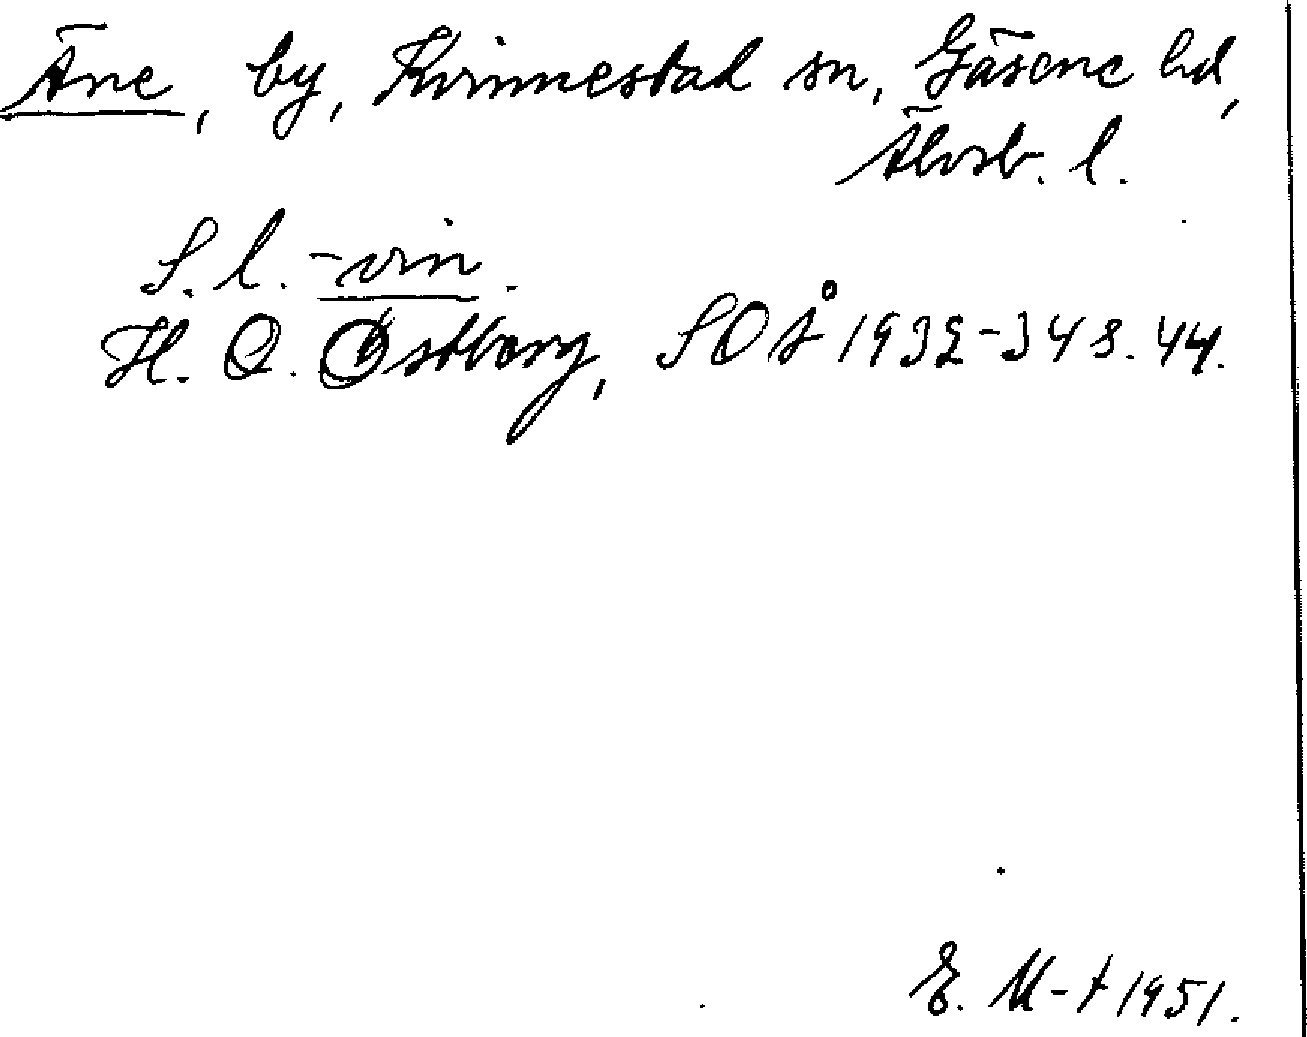 Äne, by, Kvinnestad sn, Gäsene hd,
Älvsb. l.
S. l. -vin.
H. O. Östberg, SOÅ 1932-34 s. 44.
E. M-t 1951.